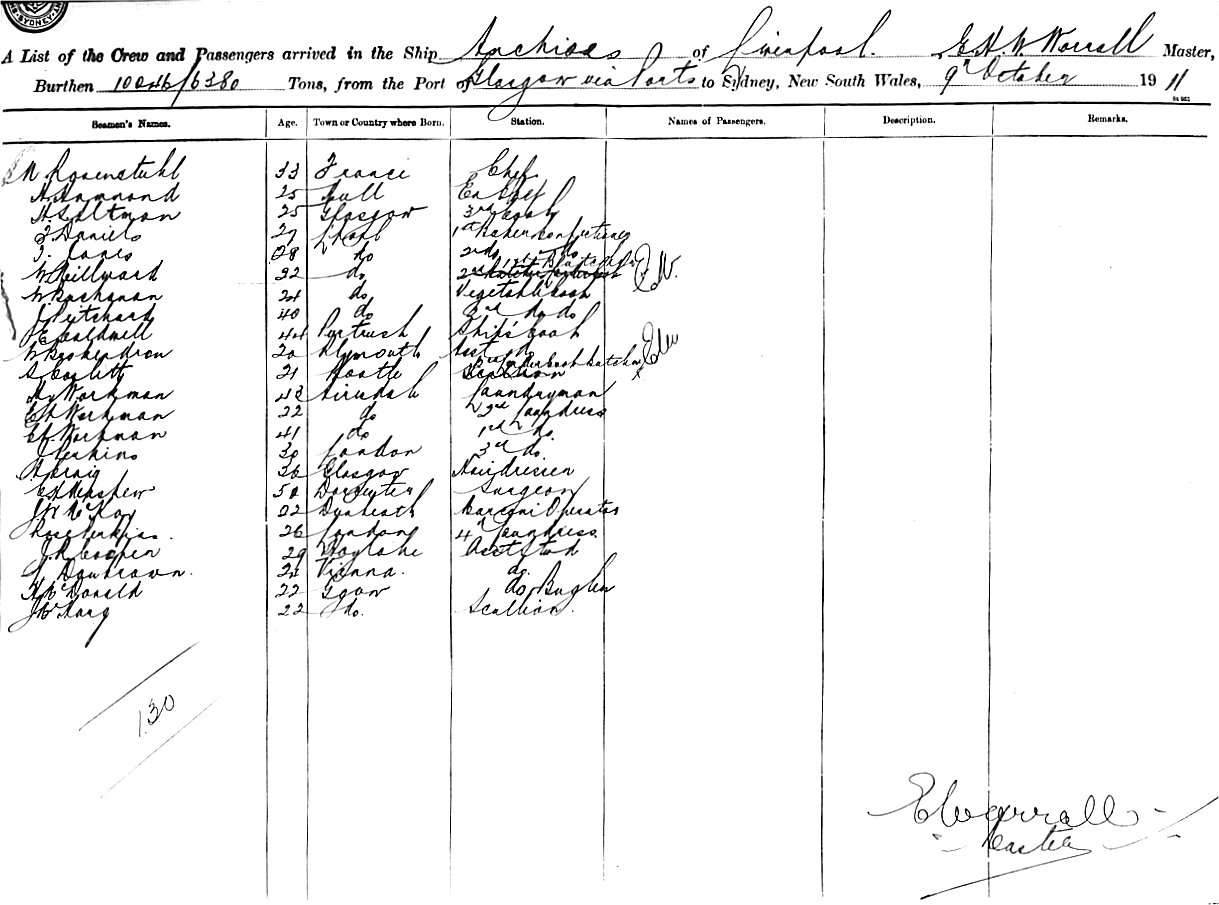 SYDNEY
A List of the Crew and Passengers arrived in the Ship Anchises of Liverpool. E.H.W. Worrall Master,
Burthen 10046/6380 Tons, from the Port of Glasgow via Ports to Sydney, New South Wales, 9th October 1911
Seamen's Names. Age. Town or Country where Born. Station. Names of Passengers. Description. Remarks.
N Rosenstuhl 33 France Chef
H Hammond 25 Hull En Chef
H. Saltman 25 Glasgow 3rd Cook
F Daniels 27 L'pool 1st Baker Confectioner
T. Jones 28 do 2nd do do
W Hillyard 32 do 1st Butcher EW.
W Buchanan 24 do Vegetable Cook
J Pritchard 40 do 2nd do do
Caldwell 44 Portrush Ship's Cook
W 20 Plymouth Asst do EW
S. Corlett 21 Bootle
Hy Workman 43 Airedale Laundryman
E A Workman 22 do 2nd Laundress
E Workman 41 do 1st do.
J Perkins 30 London 3rd do.
A Craig 36 Glasgow Hairdresser
50 Surgeon
J W McKay 22 Dunbeath Marconi Operator
Rose Perkins. 26 London 4th Laundress
J. R. Cooper 29 Hoylake Asst Std
24 Vienna. do.
H McDonald 22 Ggow do Bugler
J W 22 do. Scullion.
130
E Worrall
Master